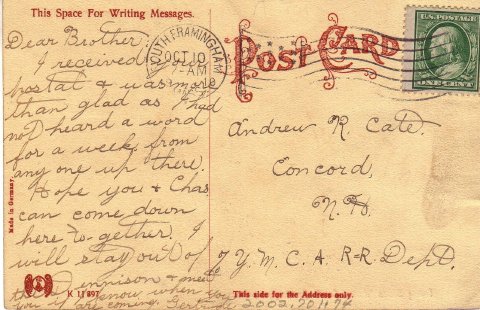 This Space For Writing Messages.
Dear Brother,
I received
postal & was more
than glad as I had
not heard a word
for a week from
any one up there.
Hope you & Chas.
can come down
here to-gether. I
will stay out of
the Dennison & meet
you if I know when you
are coming. Gertrude
Made in Germany.
K 11 897
SOUTH FRAMINGHAM
OCT 10
7-AM
POST CARD
U.S. POSTAGE
ONE CENT
Andrew R. Cate.
Concord,
N. H.
Y. M. C. A R-R. Dept.
This side for the Address only.
2002.20.11.94